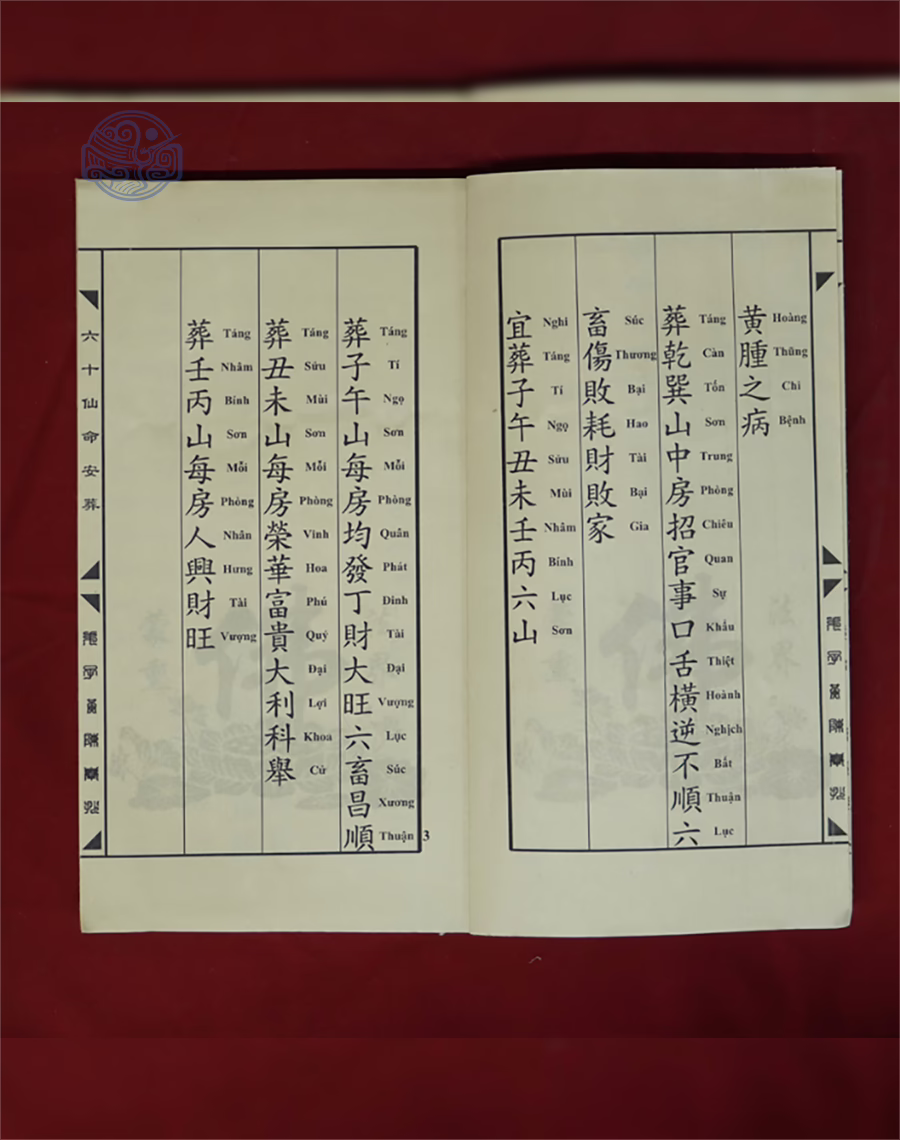 黄腫之病
Hoàng Thũng Chi Bệnh
葬乾巽山中房招官事口舌橫逆不順六
Táng Càn Tốn Sơn Trung Phòng Chiêu Quan Sự Khẩu Thiệt Hoành Nghịch Bất Thuận Lục
畜傷敗耗財敗家
Súc Thương Bại Hao Tài Bại Gia
宜葬子午丑未壬丙六山
Nghi Táng Tí Ngọ Sửu Mùi Nhâm Bính Lục Sơn
葬子午山每房均發丁財大旺六畜昌順
Táng Tí Ngọ Sơn Mỗi Phòng Quân Phát Đinh Tài Đại Vượng Lục Súc Xương Thuận
3
葬丑未山每房榮華富貴大利科舉
Táng Sửu Mùi Sơn Mỗi Phòng Vinh Hoa Phú Quý Đại Lợi Khoa Cử
葬壬丙山每房人興財旺
Táng Nhâm Bính Sơn Mỗi Phòng Nhân Hưng Tài Vượng
六十仙命安葬